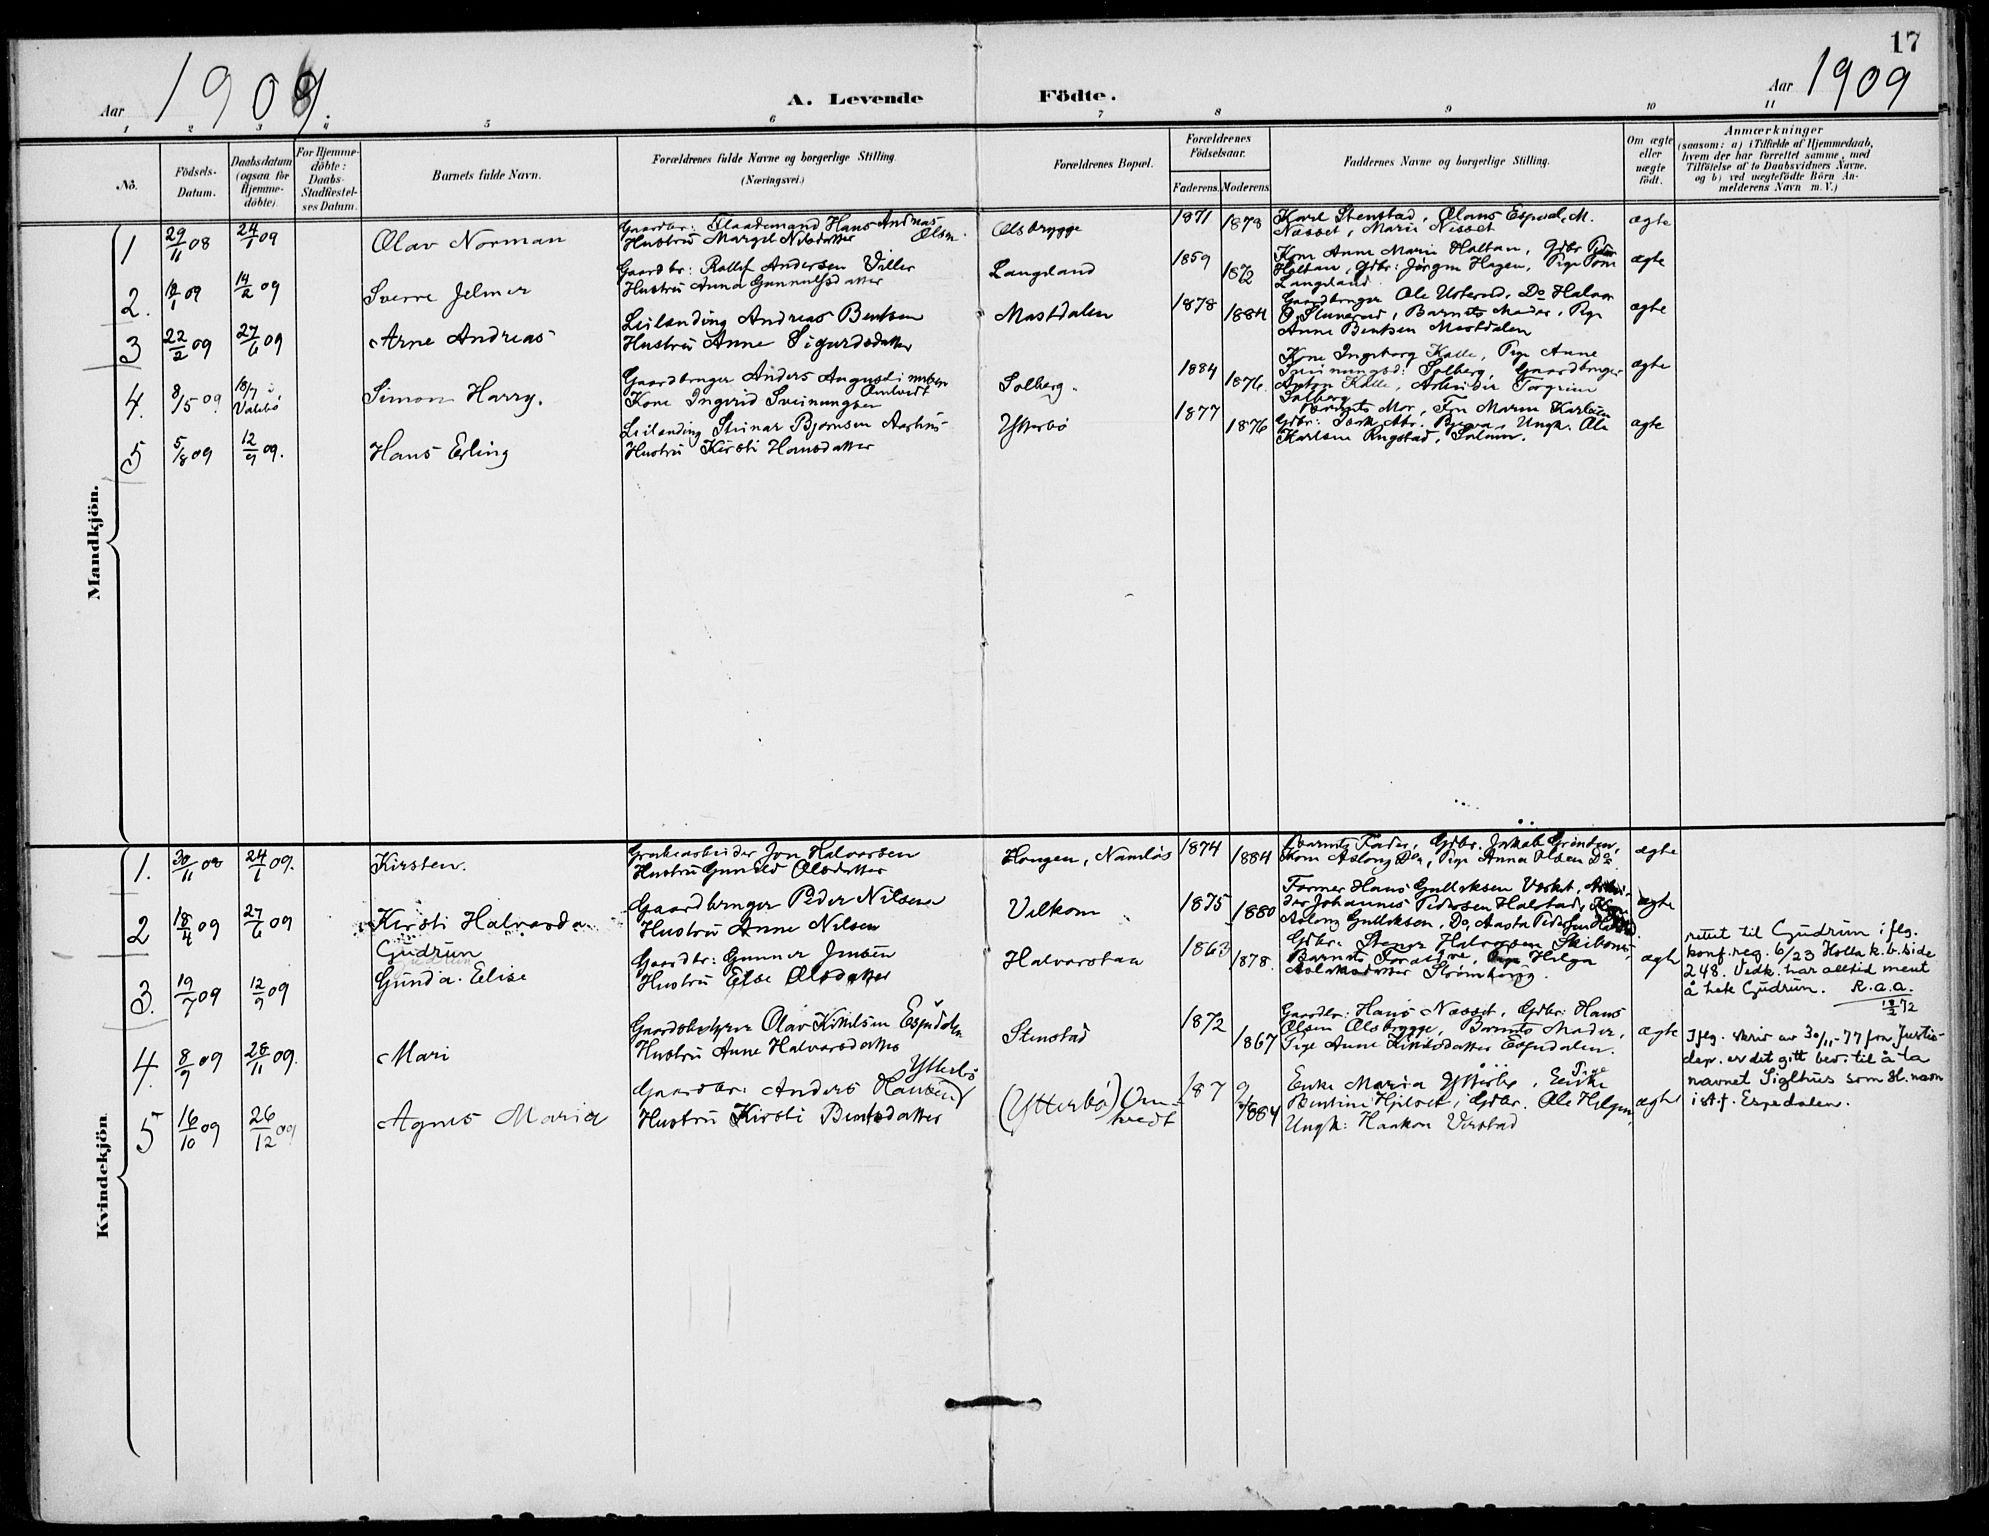 17
Aar 1909.
A. Levende Födte.
Aar 1909
1 2 3 4 5 6 7 8 9 10 11
Nö.
Födsels-Datum.
Daabsdatum (ogsaa for Hjemme-döbte)
For Hjemme-döbte: Daabs-Stadfæstel-ses Datum.
Barnets fulde Navn.
Forældrenes fulde Navne og borgerlige Stilling.
(Næringsvei.)
Forældrenes Bopæl.
Forældrenes Födselsaar.
Faderens. Moderens.
Faddernes Navne og borgerlige Stilling.
Om ægte eller uægte födt.
Anmærkninger
(saasom: a) i Tilfælde af Hjemmedaab,
hvem der har forrettet samme, med
Tilföielse af to Daabsvidners Navne.
og b) ved uægtefödte Börn An-
melderens Navn m. V.)
Mandkjön.
1 29/11 08 24/1 09 Olav Norman
Gaardbr: Flaademand Hans Andreas Olsen
Hustru Margit Nilsdatter
Olsbrygge 1871 1878
Karl Stenstad, Olaus Espedal, M.
Næsset, Marie Nesset
ægte
2. /1 09 14/2 09 Sverre Jelmer
Gaardbr: Rollef Andersen Viller
Hustru Anna Gunnulfsdatter
Langeland 1859 1872
Kone Anne Marie Holtan, Gdbr
Holtan, Gdbr: Jørgen Hagen, Pige
Langeland
ægte
3 22/2 09 27/6 09 Arne Andreas
Leilending Andreas Bentsen
Hustru Anne Sigurdsdatter
Mastdalen 1878 1884
Gaardbruger Ole Usterud, Do Halvor
Barnets Moder, Pige
Anne Bentsen Mastdalen
ægte
4. 8/5 09 18/7 Valebö Simon Harry.
Gaardbruger Anders August
Kone Ingerid Sveinungsen
Solberg. 1884 1876
Kone Ingeborg Kalle, Pige Anne
Sveinungsd: Solberg, Gaardbruger
Anton Kalle, Arbeider Torgrim
Solberg
ægte
5 5/8 09 12/9 09. Hans Erling
Leilending Steinar Bjørnsen
Hustru Kirsti Hansdatter
Ytterbø 1877 1876
Barnets Mor, Fru Maren Karlsen
Gdbr: Ungk. Ole
Karlsen Ringstad, Solum.
ægte
Kvindekjön
1. 30/11 08 24/1 09. Kirsten.
Grubearbeider Jon Halvorsen
Hustru Gunild Olsdatter
Haugen, Namløs 1874 1884
Barnets Fader, Gdbr. Jakob
Kone Aslaug Do, Pige Anna Olsen Do
ægte
2 18/4 09 27/6 09 Kirsti Halvarda
Gaardbruger Peder Nilsen
Hustru Anne Nilsen
Vilkom 1875 1880
Farmer Hans Gulleksen Arbei-
der Johannes Pedersen Halstad,
Aslaug Gulleksen, Do, Aasta Pedersen
ægte
3. 19/7 09 12/9 09 Gudrun
Gunda Elise
Gaardbr: Gunner Jensen
Hustru Else Olsdatter
Halvarstaa 1863 1878.
Gdbr: Stener Halvorsen Skibsnes,
Barnets Forældre, Pige Helga
Aslaksdatter Strømberg.
ægte
rettet til Gudrun iflg.
konf. reg. 6/23 Holla k.b. side
248. Vedk. har alltid ment
å hete Gudrun. R.a.a.
18/2 72
4. 8/9 09 28/11 09. Mari
Gaardsbestyrer Olav Kittelsen Espedalen
Hustru Anne Halvorsdatter
Stenstad 1872 1867
Gaardbr: Hans Næsset, Gdbr: Hans
Olsen Olsbrygge, Barnets Moder,
Pige Anne Kittilsdatter Espedalen.
ægte
Iflg. skriv av 30/11-77 fra Justis-
dep. er det gitt bev. til å ta
navnet Siglhus som sl. navn
i st. f. Espedalen.
5 16/10 09 26/12 09 Agnes Maria
Gaardbr: Anders Hansen Ytterbø
Hustru Kirsti Bentsdatter
(Ytterbø) Om-
tvedt
187 9 1884
Enke Maria Ytterbø, Pige
Bentine Hjelset, Gdbr. Ole Helgen,
Ungk: Haakon Verstad
ægte